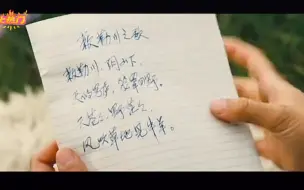 敕勒川之歌
敕勒川，阴山下，
天似穹庐，笼盖四野。
天苍苍，野茫茫，
风吹草地见牛羊。